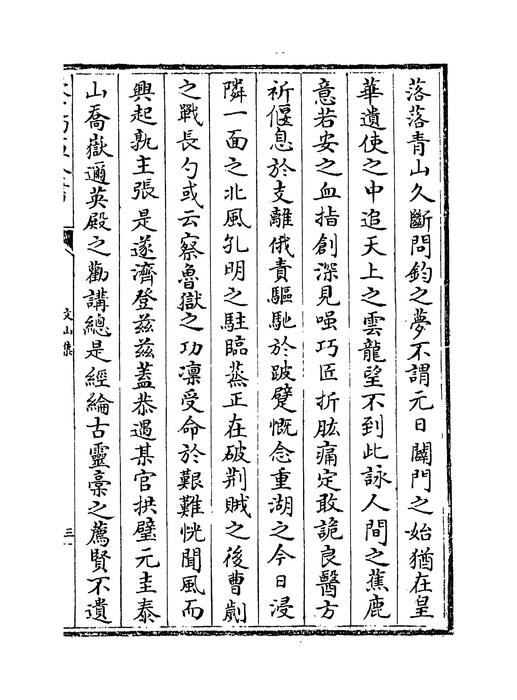 落落青山久斷問鈞之夢不謂元日闢門之始猶在皇
華遺使之中追天上之雲龍望不到此詠人間之蕉鹿
意若安之血指創深見嗤巧匠折肱痛定敢詭良醫方
祈偃息於支離俄責驅馳於跛躄慨念重湖之今日浸
隣一面之北風孔明之駐臨蒸正在破荆賊之後曹劌
之戰長勺或云察魯獄之功凛受命於艱難恍聞風而
興起孰主張是遂濟登兹兹蓋恭遇某官拱璧元圭泰
山喬嶽邇英殿之勸講總是經綸古靈稾之薦賢不遺
文山集
三